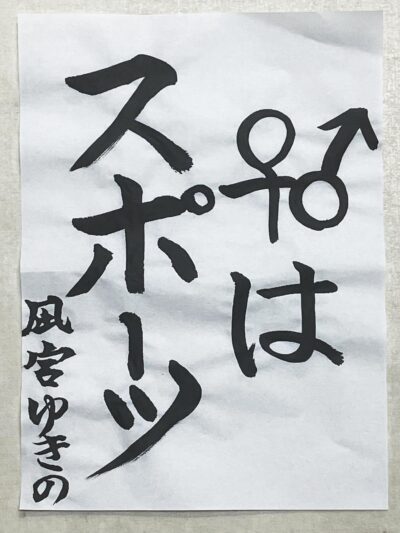 ♀♂は
スポーツ
凰宮ゆきの